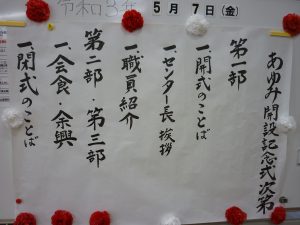 令和3年
5月7日(金)
あゆみ開設記念式次第
第一部
一、開式のことば
一、センター長 挨拶
一、職員紹介
第二部・第三部
一、会食・余興
一、閉式のことば